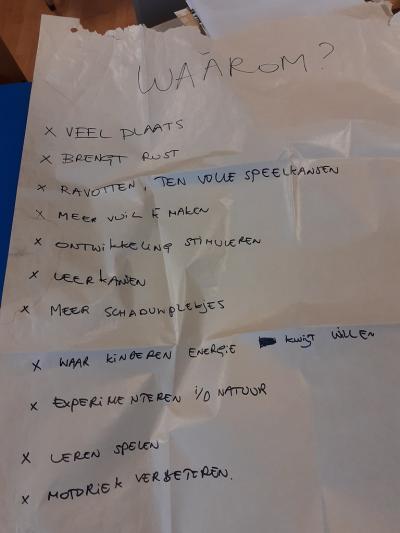 WAAROM?
x VEEL PLAATS
x BRENGT RUST
x RAVOTTEN, TEN VOLLE SPEELKANSEN
x MEER VUIL TE MAKEN
x ONTWIKKELING STIMULEREN
x LEERKANSEN
x MEER SCHADUWPLEKJES
x WAAR KINDEREN ENERGIE KWIJT WILLEN
x EXPERIMENTEREN i/d NATUUR
x LEREN SPELEN
x MOTORIEK VERBETEREN.